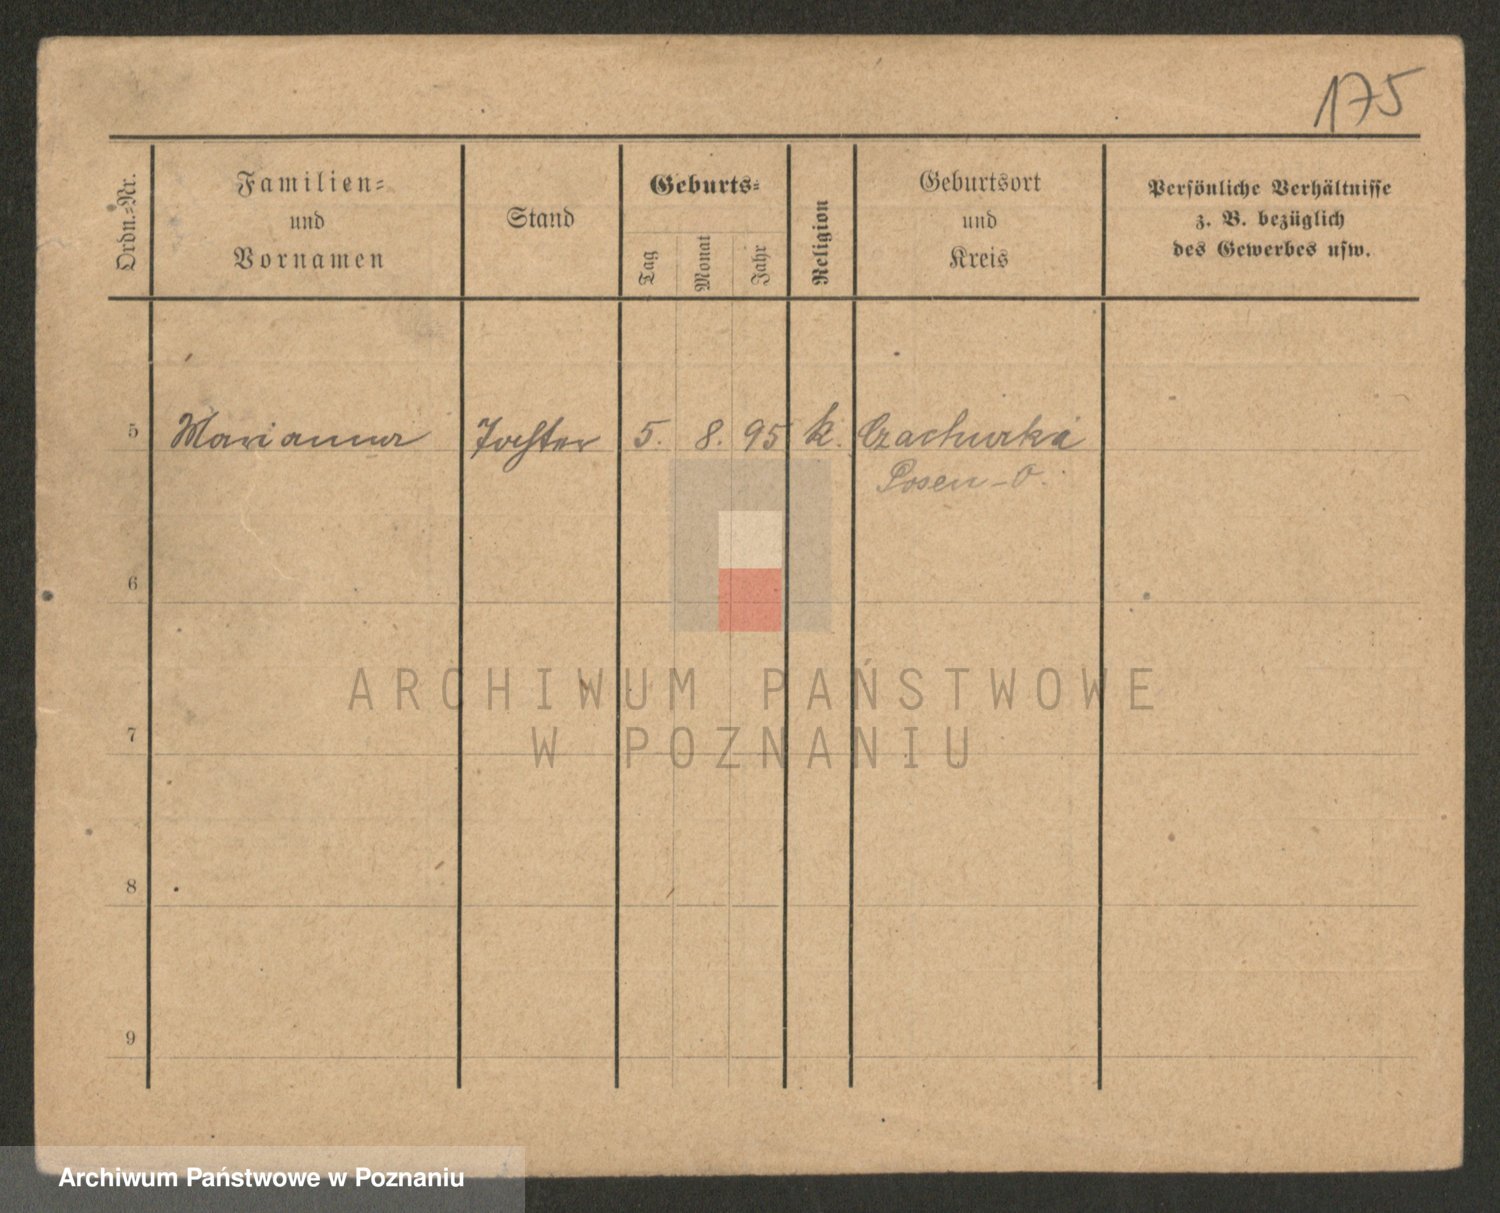 175
Ordn.=Nr.
Familien=
und
Vornamen
Stand
Geburts=
Tag
Monat
Jahr
Religion
Geburtsort
und
Kreis
Persönliche Verhältnisse
z. B. bezüglich
des Gewerbes usw.
5 Marianna Tochter 5. 8. 95 k. Czachurki
Posen-O.
6
7
8
9
ARCHIWUM PAŃSTWOWE
W POZNANIU
Archiwum Państwowe w Poznaniu